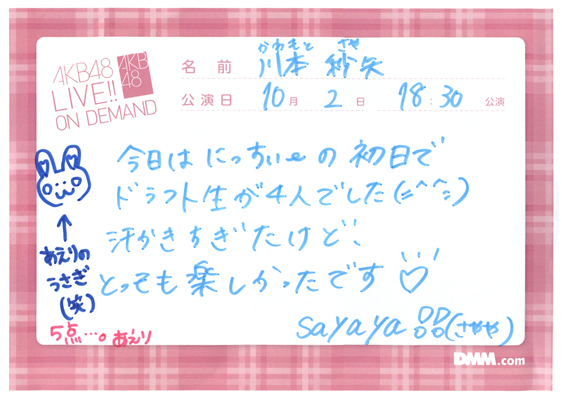 AKB48
LIVE!!
ON DEMAND
AKB
48
かわもと さや
名前 川本 紗矢
公演日 10月 2日 18:30 公演
今日はにっちぃーの初日で
ドラフト生が4人でした(=^^=)
汗かきすぎたけど、
とっても楽しかったです♡
sayaya(さやや)
↑
あえりの
うさぎ
(笑)
5点…。あえり
DMM.com